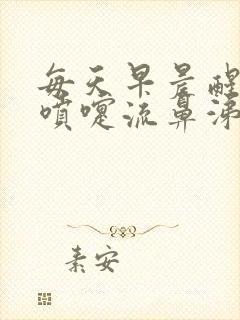 每天早晨醒
喷嚏流鼻涕
素安